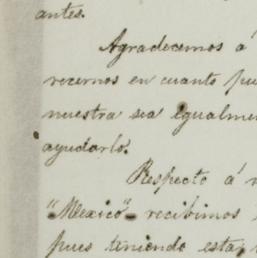 antes.
Agradecemos á
recernos en cuanto pu
nuestra sea igualme
ayudarlo.
Respecto á
"Mexico" recibimos
pues teniendo esta